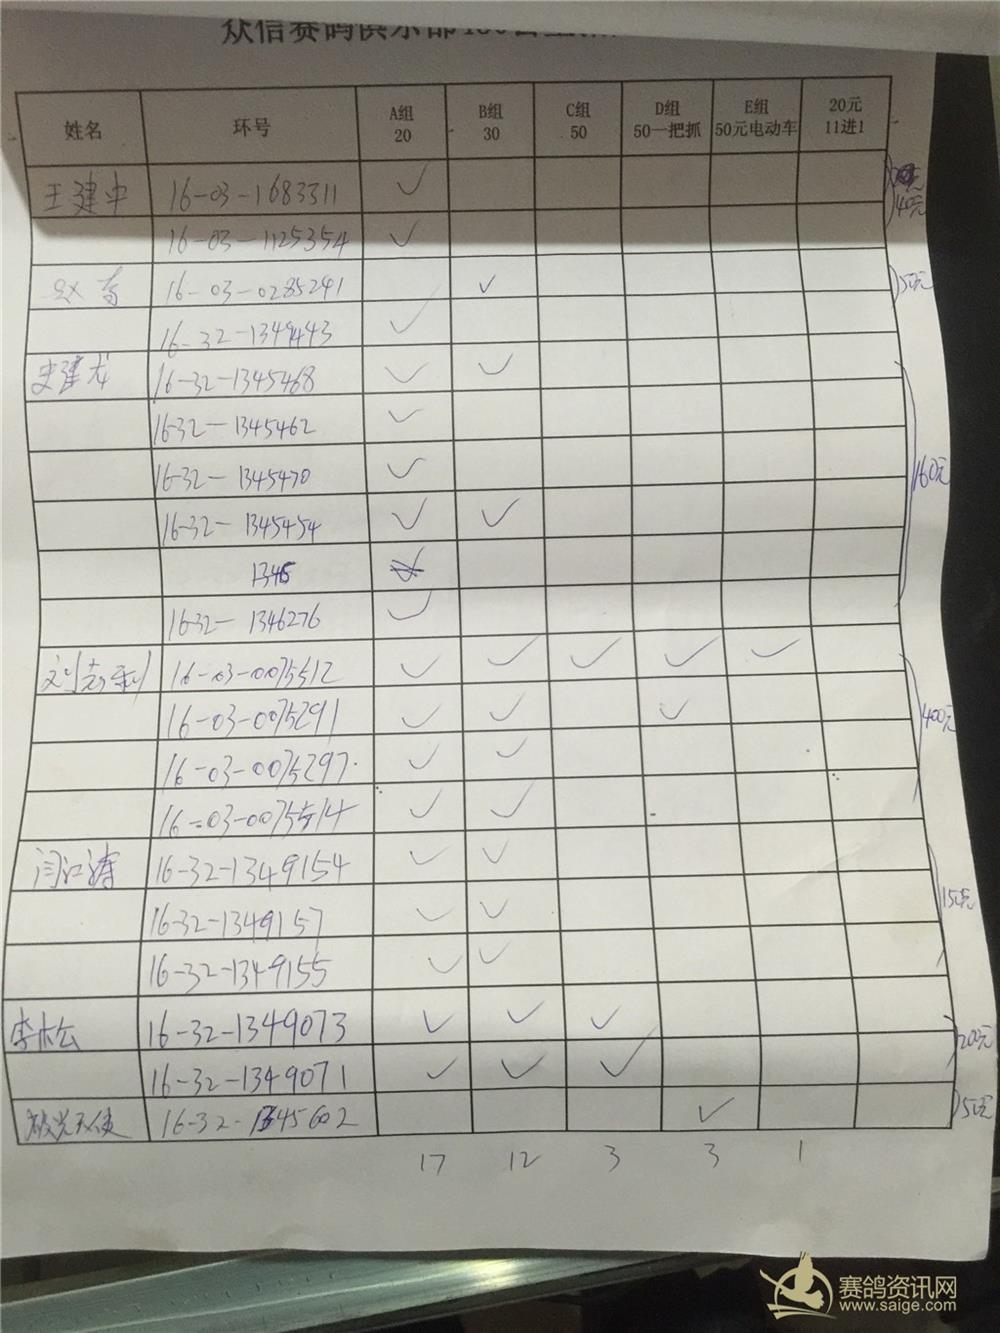 众信赛鸽俱乐部
姓名 环号 A组 20 B组 30 C组 50 D组 50一把抓 E组 50元电动车 20元 11进1
王建中 16-03-1683311 ✓ 40元
16-03-1125354 ✓
16-03-0285241 ✓ 50元
16-32-1349443 ✓
史建龙 16-32-1345468 ✓ ✓
16-32-1345462 ✓
16-32-1345470 ✓ 160元
16-32-1345454 ✓ ✓
1345
16-32-1346276 ✓
刘志利 16-03-0075612 ✓ ✓ ✓ ✓ ✓
16-03-0075291 ✓ ✓ ✓ 400元
16-03-0075297 ✓ ✓
16-03-0075514 ✓ ✓
闫江涛 16-32-1349154 ✓ ✓
16-32-1349157 ✓ ✓ 150元
16-32-1349155 ✓ ✓
李松 16-32-1349073 ✓ ✓ ✓ 200元
16-32-1349071 ✓ ✓ ✓
极光天使 16-32-1345602 ✓ 50元
17 12 3 3 1
赛鸽资讯网
www.saige.com